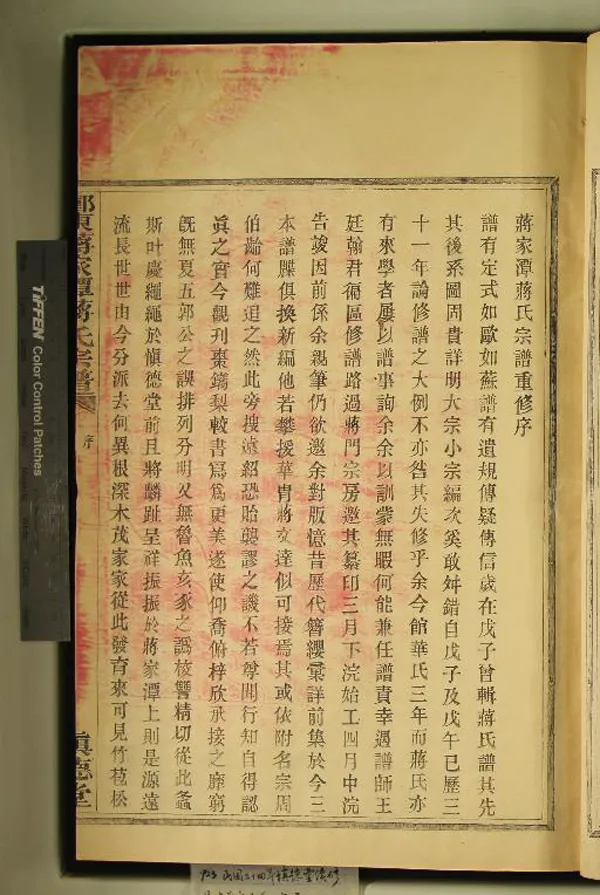 蔣家潭蔣氏宗譜重修序
譜有定式如歐如蘇譜有遺規傳疑傳信歲在戊子曾輯蔣氏譜其先
其後系圖周貴詳明大宗小宗編次奚敢舛錯自戊子及戊午已歷三
十一年論修譜之大例不亦咎其失修乎余今館華氏三年而蔣氏亦
有來學者屢以譜事詢余余以訓蒙無暇何能兼任譜責幸遇譜師王
廷翰君衕區修譜路過蔣門宗房邀其纂印三月下浣始工四月中浣
告竣因前係余親筆仍欲邀余對版憶昔歷代簪纓彙詳前集於今三
本譜牒俱換新編他若攀援華胄蔣文達似可接焉其或依附名宗周
伯齡何難追之然此旁搜遠紹恐貽襲謬之譏不若尊聞行知自得認
眞之實今觀刋棗鐫梨較書寫爲更美遂使仰喬俯梓欣承接之靡窮
旣無夏五郭公之誤排列分明又無魯魚亥豕之譌校讐精切從此螽
斯叶慶繩繩於愼德堂前且將麟趾呈祥振振於蔣家潭上則是源遠
流長世世由今分派去何異根深木茂家家從此發育來可見竹苞松
東蔣家潭蔣氏宗譜
序
愼德堂
TIFFEN Color Control Patches
民国三十四年慎德堂